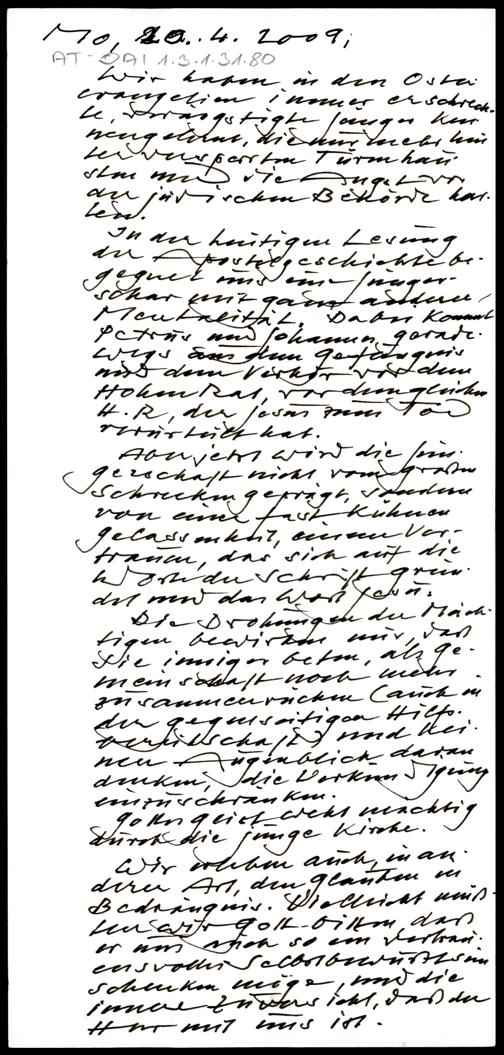 Mo, 20.4.2009;
AT-OAI 1.3.1.31.80
Wir haben in den Oster-
evangelien immer erschreck-
te, verängstigte Jünger ken-
nengelernt, die nur mehr hin-
ter versperrten Türen hau-
sten und die Angst vor
der jüdischen Behörde hat-
ten.
In der heutigen Lesung
der Apostelgeschichte be-
gegnet uns eine Jünger-
schar mit ganz anderer
Mentalität. Dabei kommen
Petrus und Johannes gerade-
wegs aus dem Gefängnis
und dem Verhör vor dem
Hohen Rat, vor demgleichen
H.R, der Jesus zum Tod
verurteilt hat.
Aber jetzt wird die Jün-
gerschaft nicht vom großen
Schrecken geprägt, sondern
von einer fast kühnen
Gelassenheit, einem Ver-
trauen, das sich auf die
Worte der Schrift grün-
det und das Wort Jesu.
Die Drohungen der Mäch-
tigen bewirken nur, daß
sie inniger beten, als Ge-
meinschaft noch mehr
zusammenrücken (auch in
der gegenseitigen Hilfs-
bereitschaft) und kei-
nen Augenblick daran
denken, die Verkündigung
einzuschränken.
Gottes Geist weht mächtig
durch die junge Kirche.
Wir erleben auch, in an-
derer Art, den Glauben in
Bedrängnis. Vielleicht müß-
ten wir Gott bitten, daß
er uns auch so ein vertrau-
ensvolles Selbstbewußtsein
schenken möge, und die
innere Zuversicht, daß der
Herr mit uns ist.